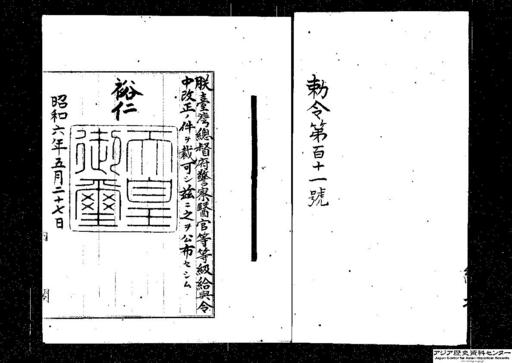 勅令第百十一號
朕臺灣總督府警察醫官等等級給與令
中改正ノ件ヲ裁可シ茲ニ之ヲ公布セシム
裕仁
天皇
御璽
昭和六年五月二十七日
アジア歴史資料センター
Japan Center for Asian Historical Records